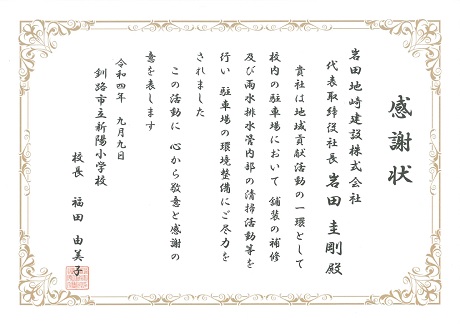 感謝状
岩田地崎建設株式会社
代表取締役社長 岩田圭剛殿
貴社は地域貢献活動の一環として
校内の駐車場において 舗装の補修
及び雨水排水管内部の清掃活動等を
行い 駐車場の環境整備にご尽力を
されました
この活動に 心から敬意と感謝の
意を表します
令和四年 九月九日
釧路市立新陽小学校
校長 福田 由美子